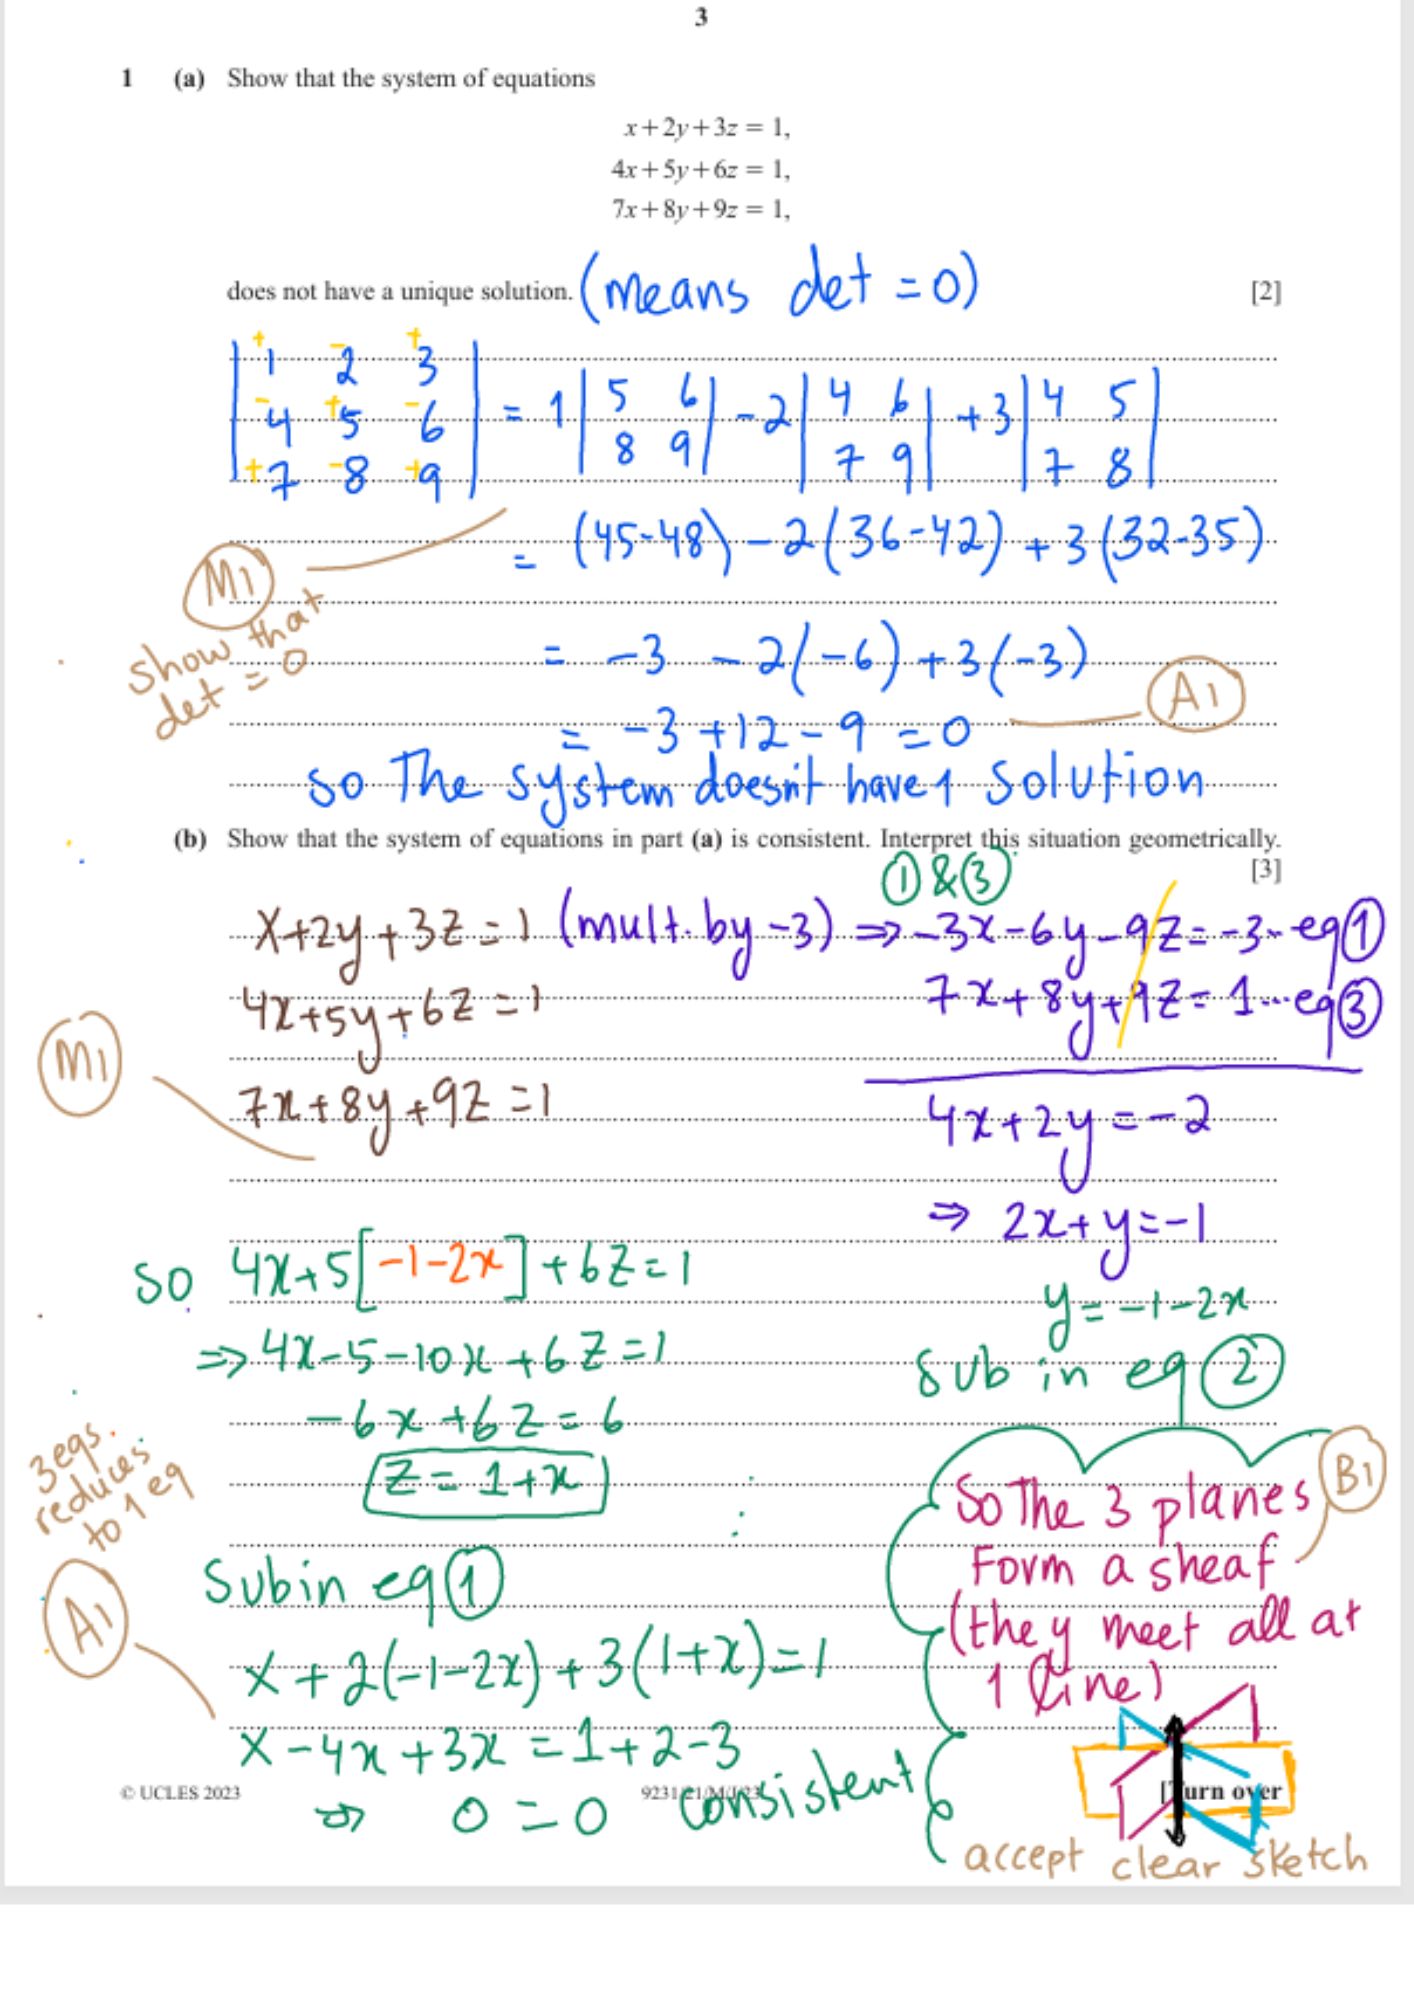 3
1 (a) Show that the system of equations
x+2y+3z = 1,
4x+5y+6z = 1,
7x+8y+9z = 1,
does not have a unique solution. (means det = 0) [2]
+ - +
1 2 3
- + -
4 5 6
+ - +
7 8 9
= 1 |5 6| - 2 |4 6| + 3 |4 5|
|8 9| |7 9| |7 8|
= (45-48) - 2(36-42) + 3(32-35)
M1
show that
det = 0
= -3 - 2(-6) + 3(-3)
A1
= -3 + 12 - 9 = 0
so The system doesn't have 1 solution
(b) Show that the system of equations in part (a) is consistent. Interpret this situation geometrically.
[3]
① & ③
x+2y+3z = 1 (mult. by -3) ⇒ -3x-6y-9z = -3 -- eq ①
4x+5y+6z = 1
7x+8y+9z = 1 ... eq ③
M1
7x+8y+9z = 1
4x+2y = -2
⇒ 2x+y = -1
y = -1-2x
sub in eq ②
so 4x+5[-1-2x]+6z = 1
⇒ 4x-5-10x+6z = 1
-6x+6z = 6
z = 1+x
3 eqs.
reduces
to 1 eq
A1
Sub in eq ①
x + 2(-1-2x) + 3(1+x) = 1
x - 4x + 3x = 1+2-3
⇒ 0 = 0 consistent
So The 3 planes
B1
Form a sheaf
(they meet all at
1 line)
© UCLES 2023
9231/21/M/J/23
[Turn over
accept clear sketch